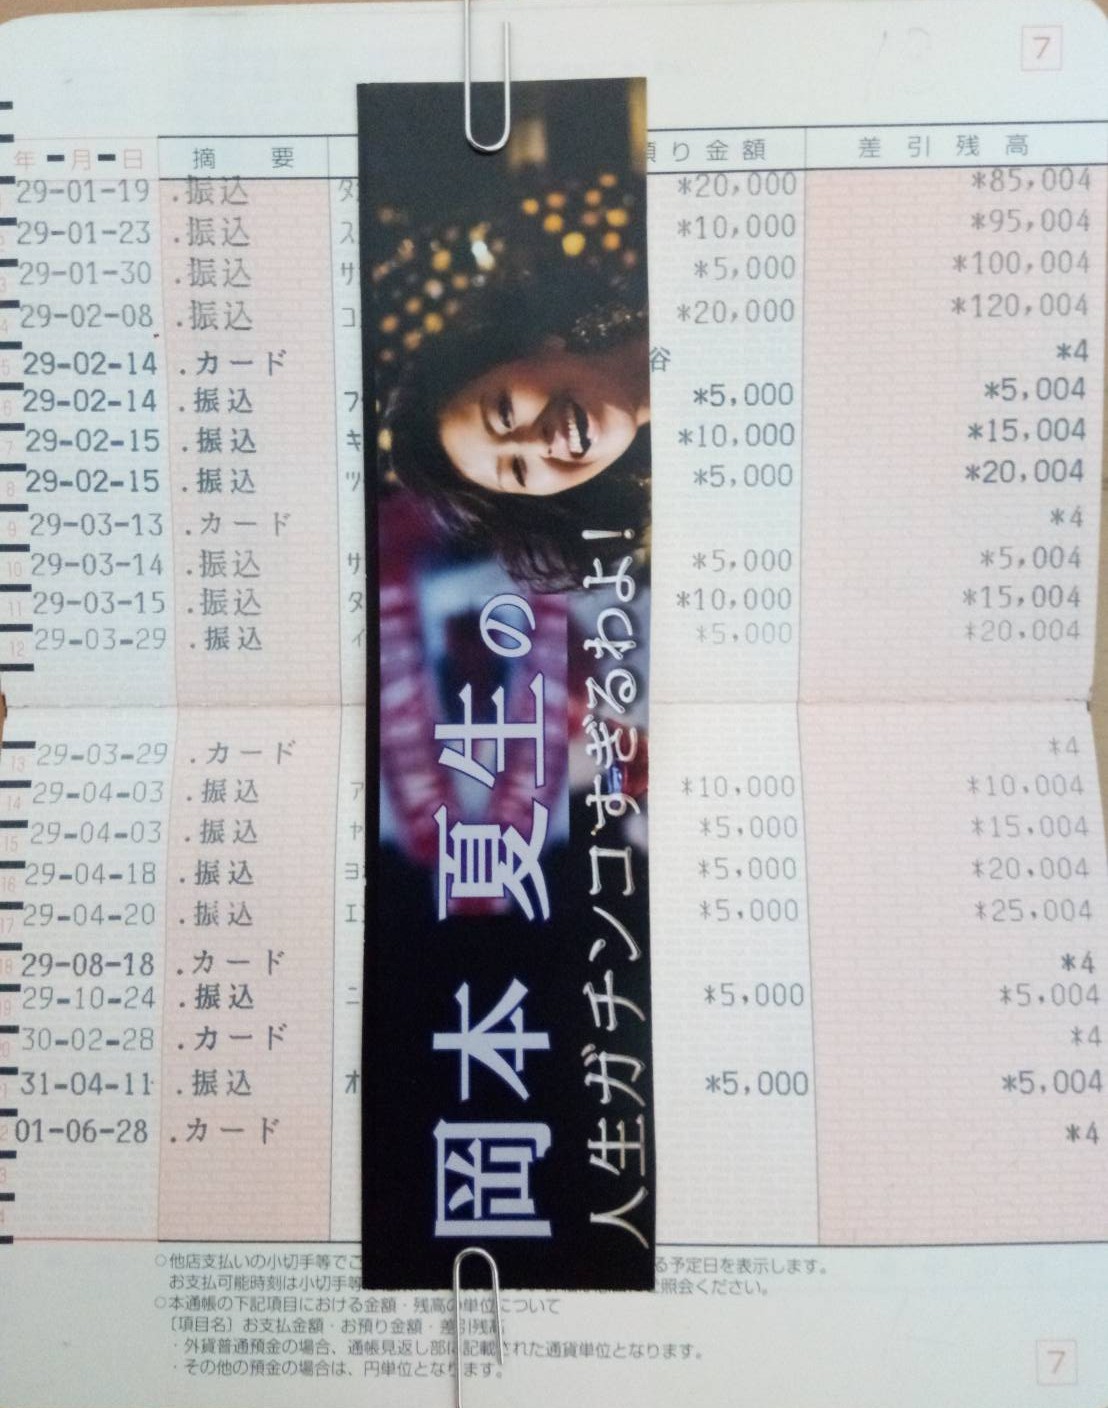 7
年-月-日 摘要 り金額 差引残高
29-01-19 .振込 タ *20,000 *85,004
29-01-23 .振込 ス *10,000 *95,004
29-01-30 .振込 サ *5,000 *100,004
29-02-08 .振込 コ *20,000 *120,004
29-02-14 .カード 谷 *4
29-02-14 .振込 フ *5,000 *5,004
29-02-15 .振込 キ *10,000 *15,004
29-02-15 .振込 ツ *5,000 *20,004
29-03-13 .カード *4
29-03-14 .振込 サ *5,000 *5,004
29-03-15 .振込 タ *10,000 *15,004
29-03-29 .振込 イ *5,000 *20,004
29-03-29 .カード *4
29-04-03 .振込 ア *10,000 *10,004
29-04-03 .振込 ヤ *5,000 *15,004
29-04-18 .振込 ヨ *5,000 *20,004
29-04-20 .振込 エ *5,000 *25,004
29-08-18 .カード *4
29-10-24 .振込 ニ *5,000 *5,004
30-02-28 .カード *4
31-04-11 .振込 オ *5,000 *5,004
01-06-28 .カード *4
岡本 夏生の
人生ガチンコすぎるわよ!
○他店支払いの小切手等でご る予定日を表示します。
お支払可能時刻は小切手等 照会ください。
○本通帳の下記項目における金額・残高の単位について
〔項目名〕お支払金額・お預り金額・差引残高
・外貨普通預金の場合、通帳見返し部に記載された通貨単位となります。
・その他の預金の場合は、円単位となります。
7